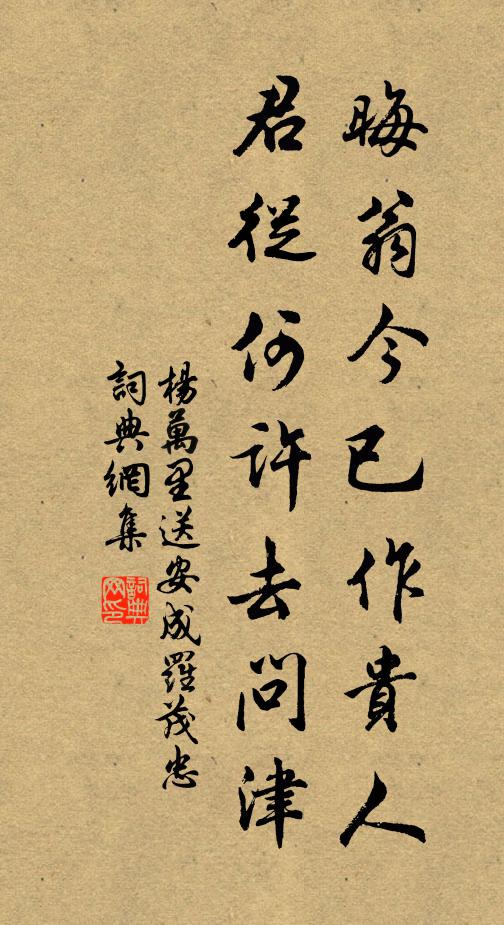 晦翁今已作貴人
君從何許去問津
楊萬里送安成羅茂忠
詞典網集
詞典網印